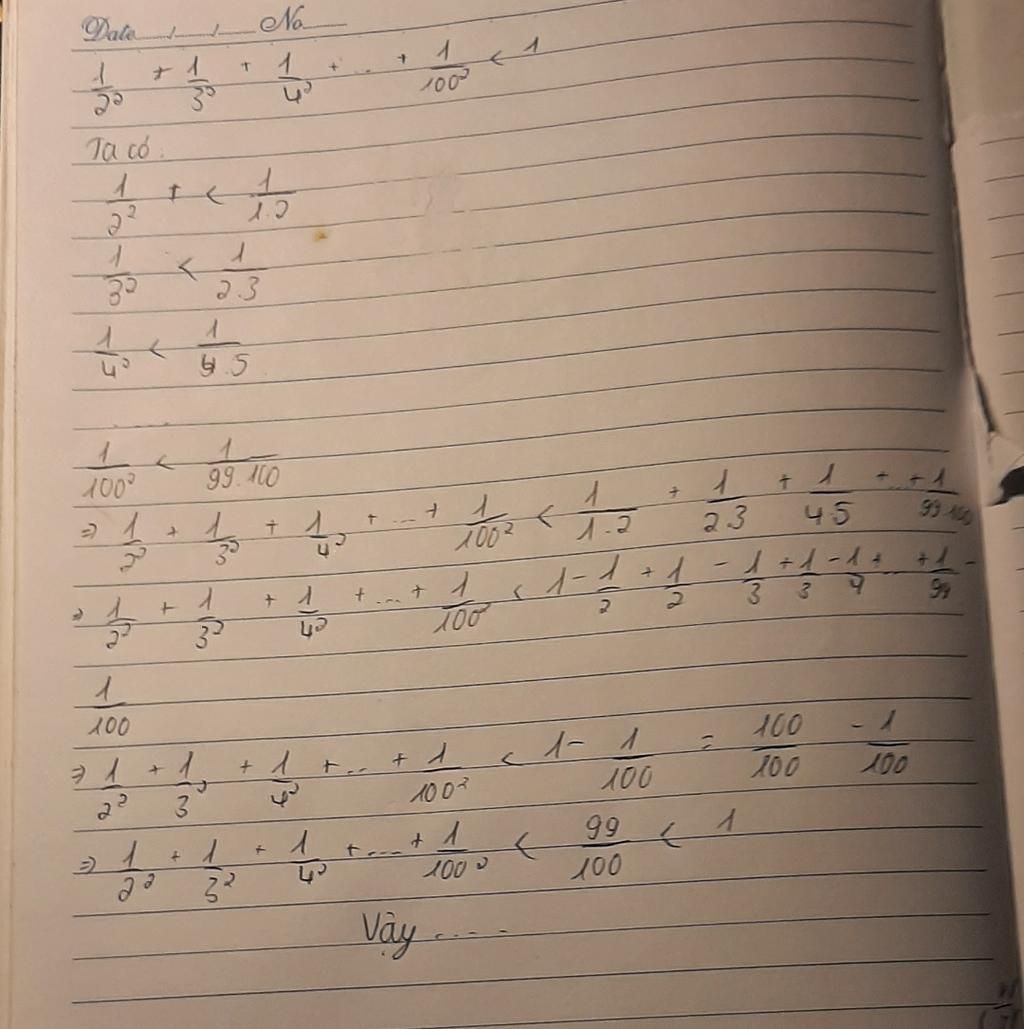 Date / / No
1/2² + 1/3² + 1/4² + ... + 1/100² < 1
Ta có:
1/2² + < 1/1.2
1/3² < 1/2.3
1/4² < 1/4.5
......
1/100² < 1/99.100
⇒ 1/2² + 1/3² + 1/4² + ... + 1/100² < 1/1.2 + 1/2.3 + 1/4.5 + ... + 1/99.100
⇒ 1/2² + 1/3² + 1/4² + ... + 1/100² < 1 - 1/2 + 1/2 - 1/3 + 1/3 - 1/4 + ... + 1/99 -
1/100
⇒ 1/2² + 1/3² + 1/4² + ... + 1/100² < 1 - 1/100 = 100/100 - 1/100
⇒ 1/2² + 1/3² + 1/4² + ... + 1/100² < 99/100 < 1
Vậy ....